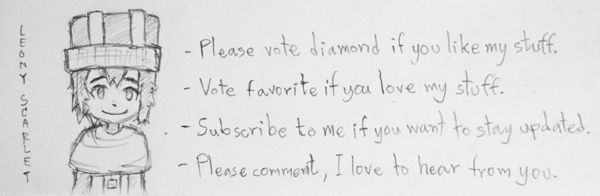 LEONY SCARLET
- Please vote diamond if you like my stuff.
- Vote favorite if you love my stuff.
- Subscribe to me if you want to stay updated.
- Please comment, I love to hear from you.